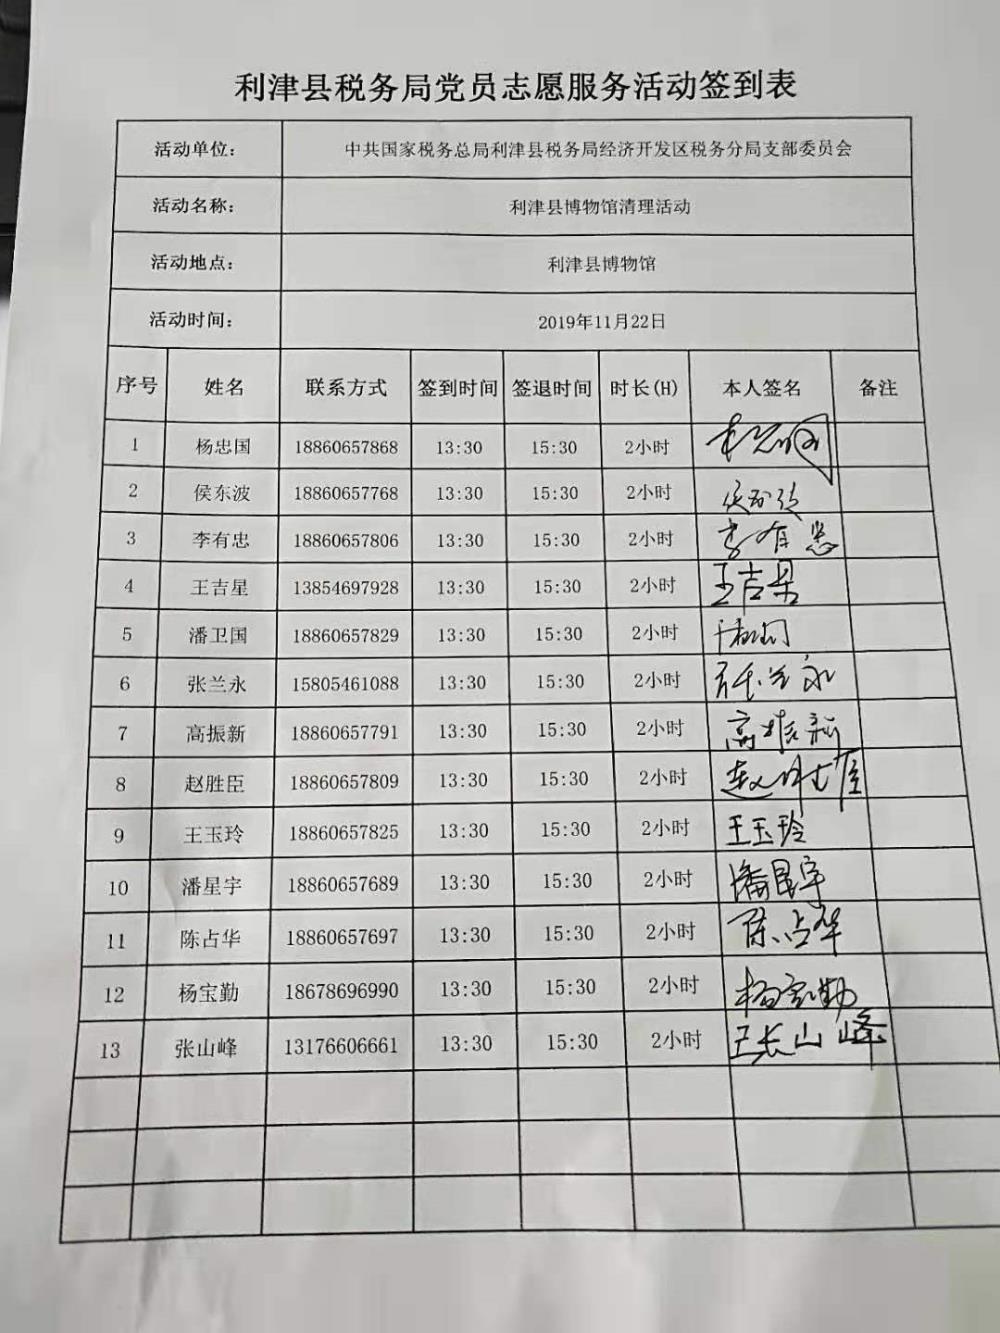 利津县税务局党员志愿服务活动签到表
活动单位： 中共国家税务总局利津县税务局经济开发区税务分局支部委员会
活动名称： 利津县博物馆清理活动
活动地点： 利津县博物馆
活动时间： 2019年11月22日
序号 姓名 联系方式 签到时间 签退时间 时长(H) 本人签名 备注
1 杨忠国 18860657868 13:30 15:30 2小时
2 侯东波 18860657768 13:30 15:30 2小时
3 李有忠 18860657806 13:30 15:30 2小时 李有忠
4 王吉星 13854697928 13:30 15:30 2小时 王吉星
5 潘卫国 18860657829 13:30 15:30 2小时
6 张兰永 15805461088 13:30 15:30 2小时 张兰永
7 高振新 18860657791 13:30 15:30 2小时 高振新
8 赵胜臣 18860657809 13:30 15:30 2小时
9 王玉玲 18860657825 13:30 15:30 2小时 王玉玲
10 潘星宇 18860657689 13:30 15:30 2小时 潘星宇
11 陈占华 18860657697 13:30 15:30 2小时 陈占华
12 杨宝勤 18678696990 13:30 15:30 2小时 杨宝勤
13 张山峰 13176606661 13:30 15:30 2小时 张山峰